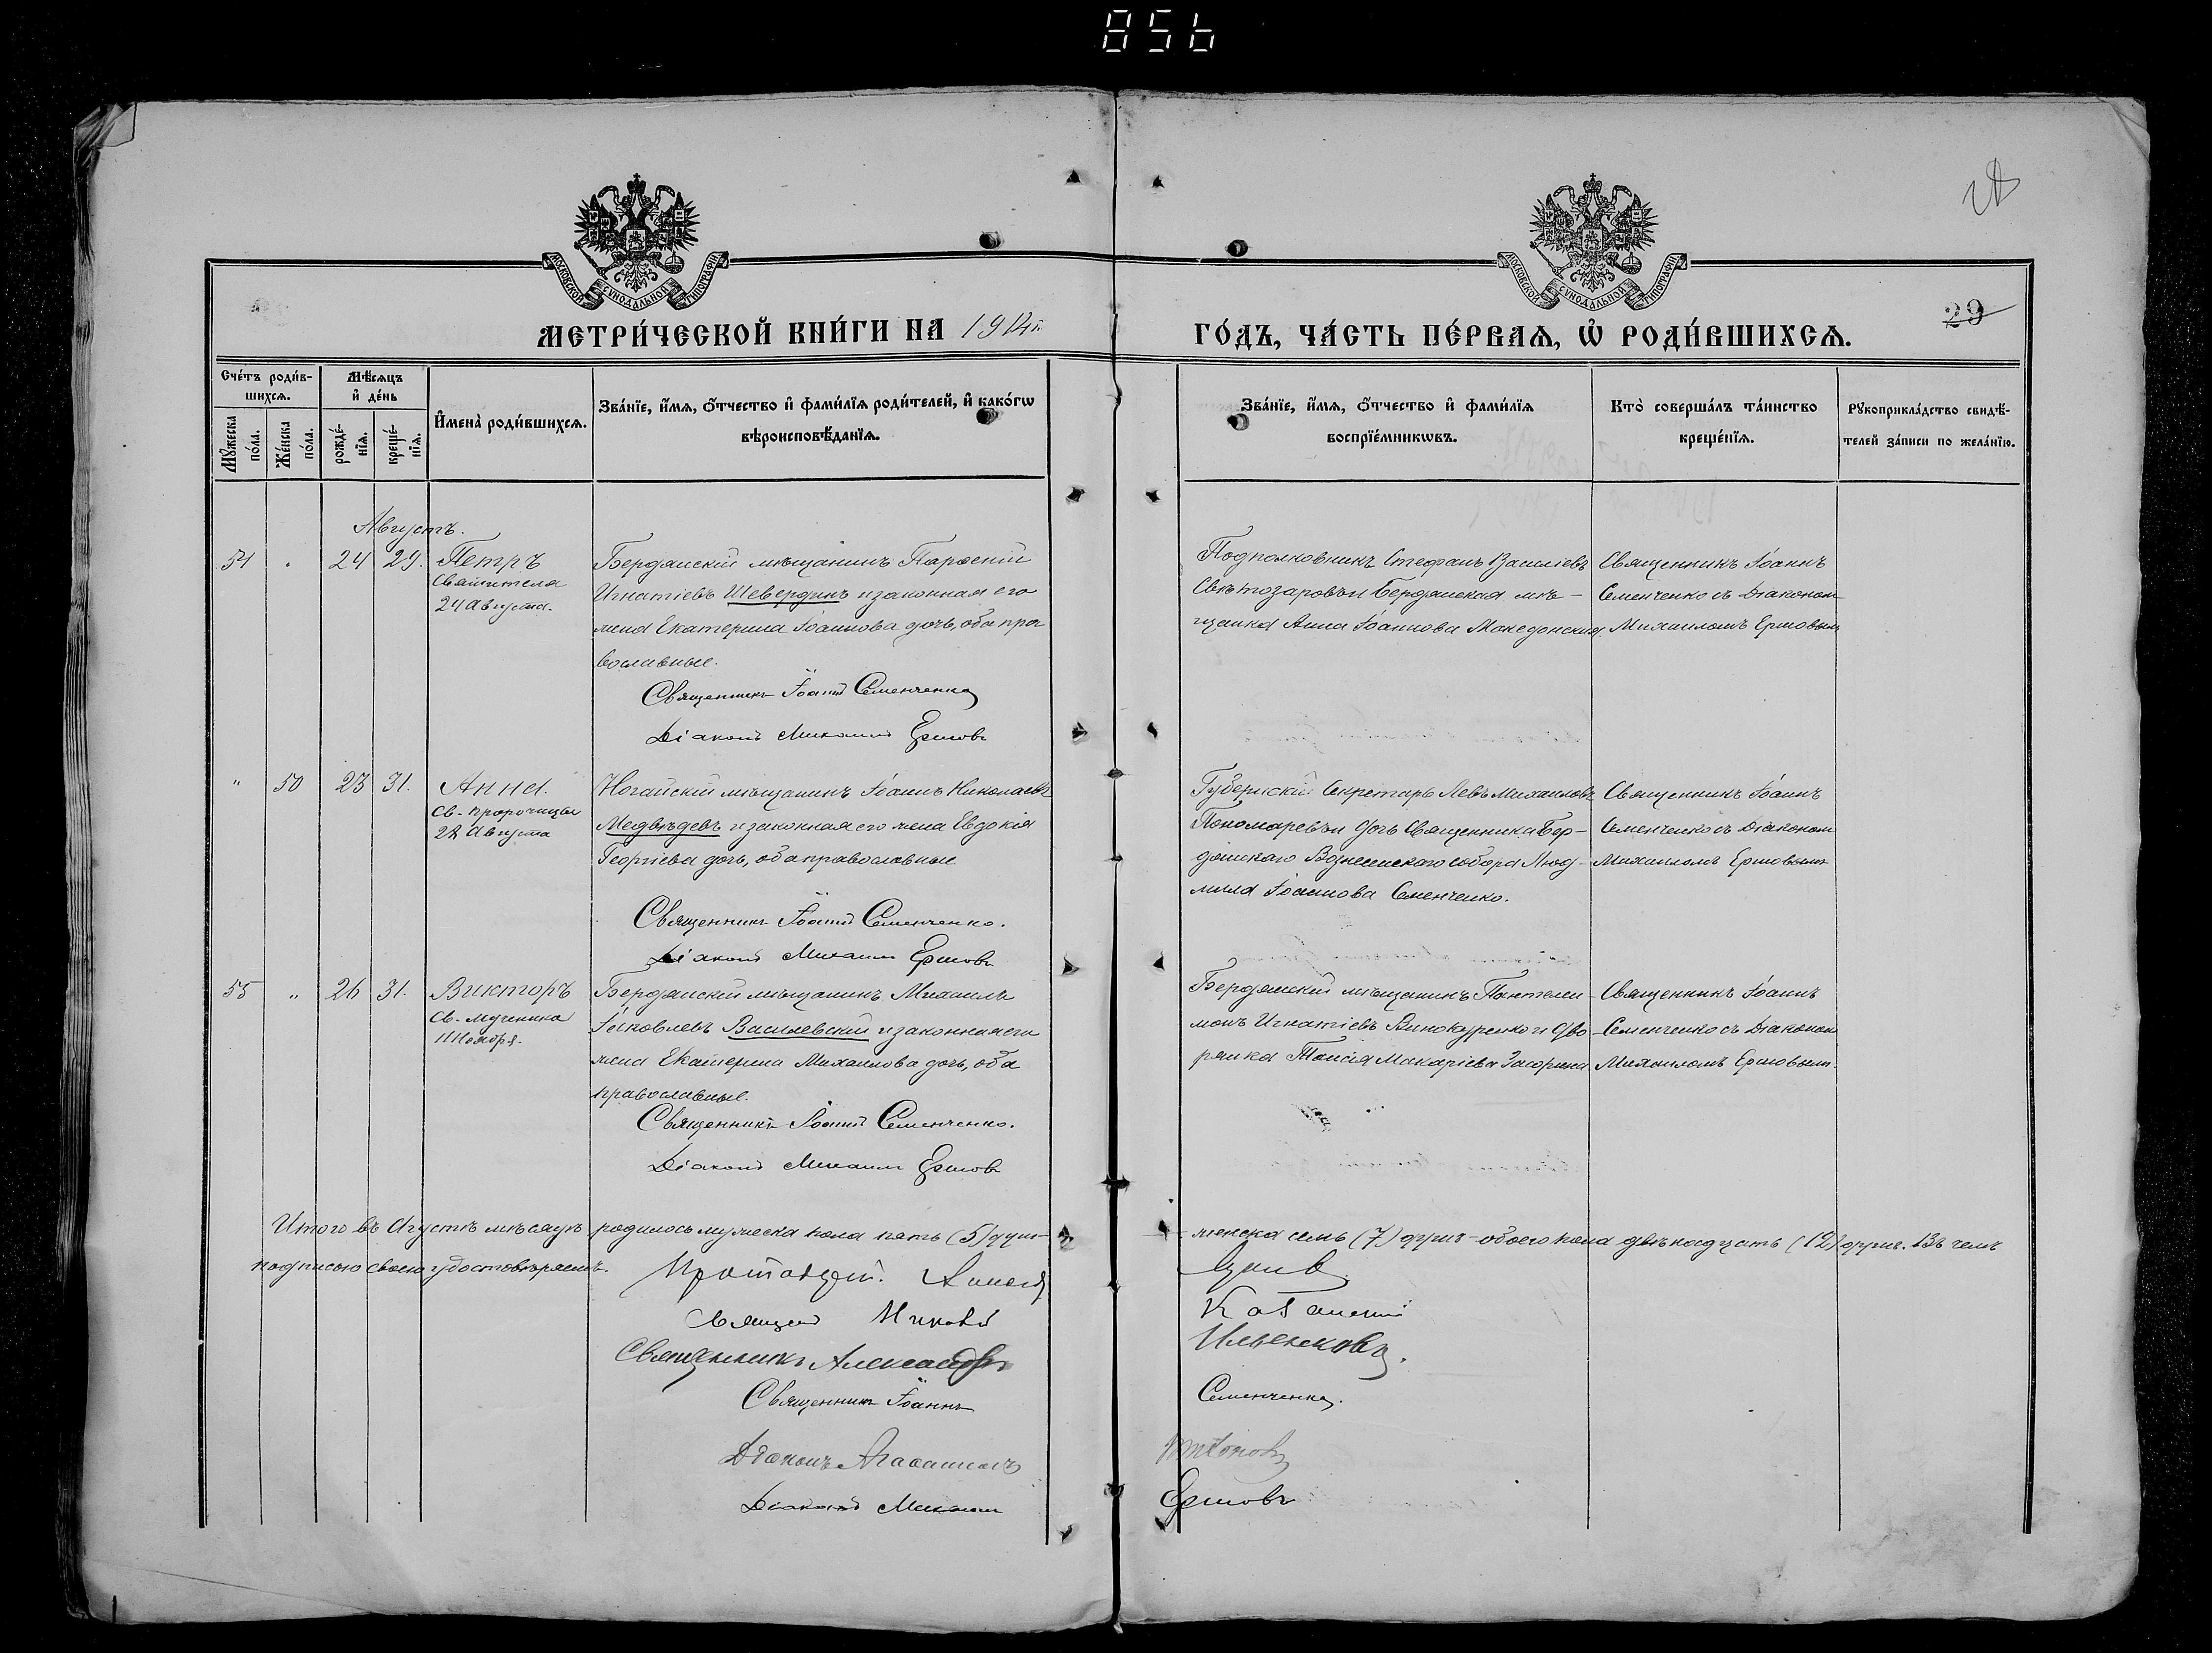 856
29
МОСКОВСКОЙ СУНОДАЛЬНОЙ ТИПОГРАФІИ
МОСКОВСКОЙ СУНОДАЛЬНОЙ ТИПОГРАФІИ
МЕТРИ́ЧЕСКОЙ КНИ́ГИ НА 1914 г.
ГО́ДЪ, ЧА́СТЬ ПЕ́РВАѦ, Ѡ҆ РОДИ́ВШИХСѦ.
Сче́тъ роди́в-
шихсѧ.
Мꙋ́жеска по́ла.
Же́нска по́ла.
Мѣ́сѧцъ
и҆ де́нь
рожде́-
нїѧ.
креще́-
нїѧ.
И҆мена̀ роди́вшихсѧ.
Зва́нїе, и҆́мѧ, ѻ҆́тчество и҆ фами́лїѧ роди́телей, и҆ како́гѡ
вѣроисповѣ́данїѧ.
Зва́нїе, и҆́мѧ, ѻ҆́тчество и҆ фами́лїѧ
воспрїе́мникѡвъ.
Кто̀ соверша́лъ та́инство
креще́нїѧ.
Рꙋкоприкла́дство свидѣ́-
телей за́писи по жела́нїю.
Августъ.
54 " 24 29. Петръ
Святителя
24 Августа.
Бердянскій мѣщанинъ Парѳеній
Игнатіевъ Шевердинъ и законная его
жена Екатерина Іоаннова дочь, оба пра-
вославные.
Священникъ Іоаннъ Семенченко
Діаконъ Михаилъ Ершовъ
Подполковникъ Стефанъ Василіевъ
Свѣтозаровъ и Бердянская мѣ-
щанка Анна Іоаннова Македонская
Священникъ Іоаннъ
Семенченко съ Діакономъ
Михаиломъ Ершовымъ
" 50 23 31. Анна.
Св. Пророчицы
28 Августа
Ногайскій мѣщанинъ Іоаннъ Николаевъ
Медвѣдевъ и законная его жена Евдокія
Георгіева дочь, оба православные
Священникъ Іоаннъ Семенченко.
Діаконъ Михаилъ Ершовъ
Губернскій Секретарь Левъ Михаиловъ
Пономаревъ и дочь Священника Бер-
дянскаго Вознесенскаго собора Люд-
мила Іоаннова Семенченко.
Священникъ Іоаннъ
Семенченко съ Діакономъ
Михаиломъ Ершовымъ
55 " 26 31. Викторъ
Св. мученика
11 Ноября.
Бердянскій мѣщанинъ Михаилъ
Іаковлевъ Василевскій и законная его
жена Екатерина Михаилова дочь, оба
православные.
Священникъ Іоаннъ Семенченко.
Діаконъ Михаилъ Ершовъ
Бердянскій мѣщанинъ Пантелеи-
монъ Игнатіевъ Винокуренко и Дво-
рянка Таисія Макаріева Загорина
Священникъ Іоаннъ
Семенченко съ Діакономъ
Михаиломъ Ершовымъ.
Итого въ Августѣ мѣсяцѣ родилось мужеска пола пять (5) душъ - женска семь (7) душъ - обоего пола двѣнадцать (12) душъ. Въ чемъ
подписью своею удостовѣряемъ.
Протоіерей Алексій
Священ Николай
Священникъ Александръ Ильенковъ.
Священникъ Іоаннъ Семенченко.
Діаконъ Аѳанасій
Діаконъ Михаилъ Ершовъ